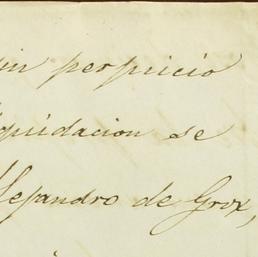 sin perjuicio
liquidacion se
Alejandro de Grox,